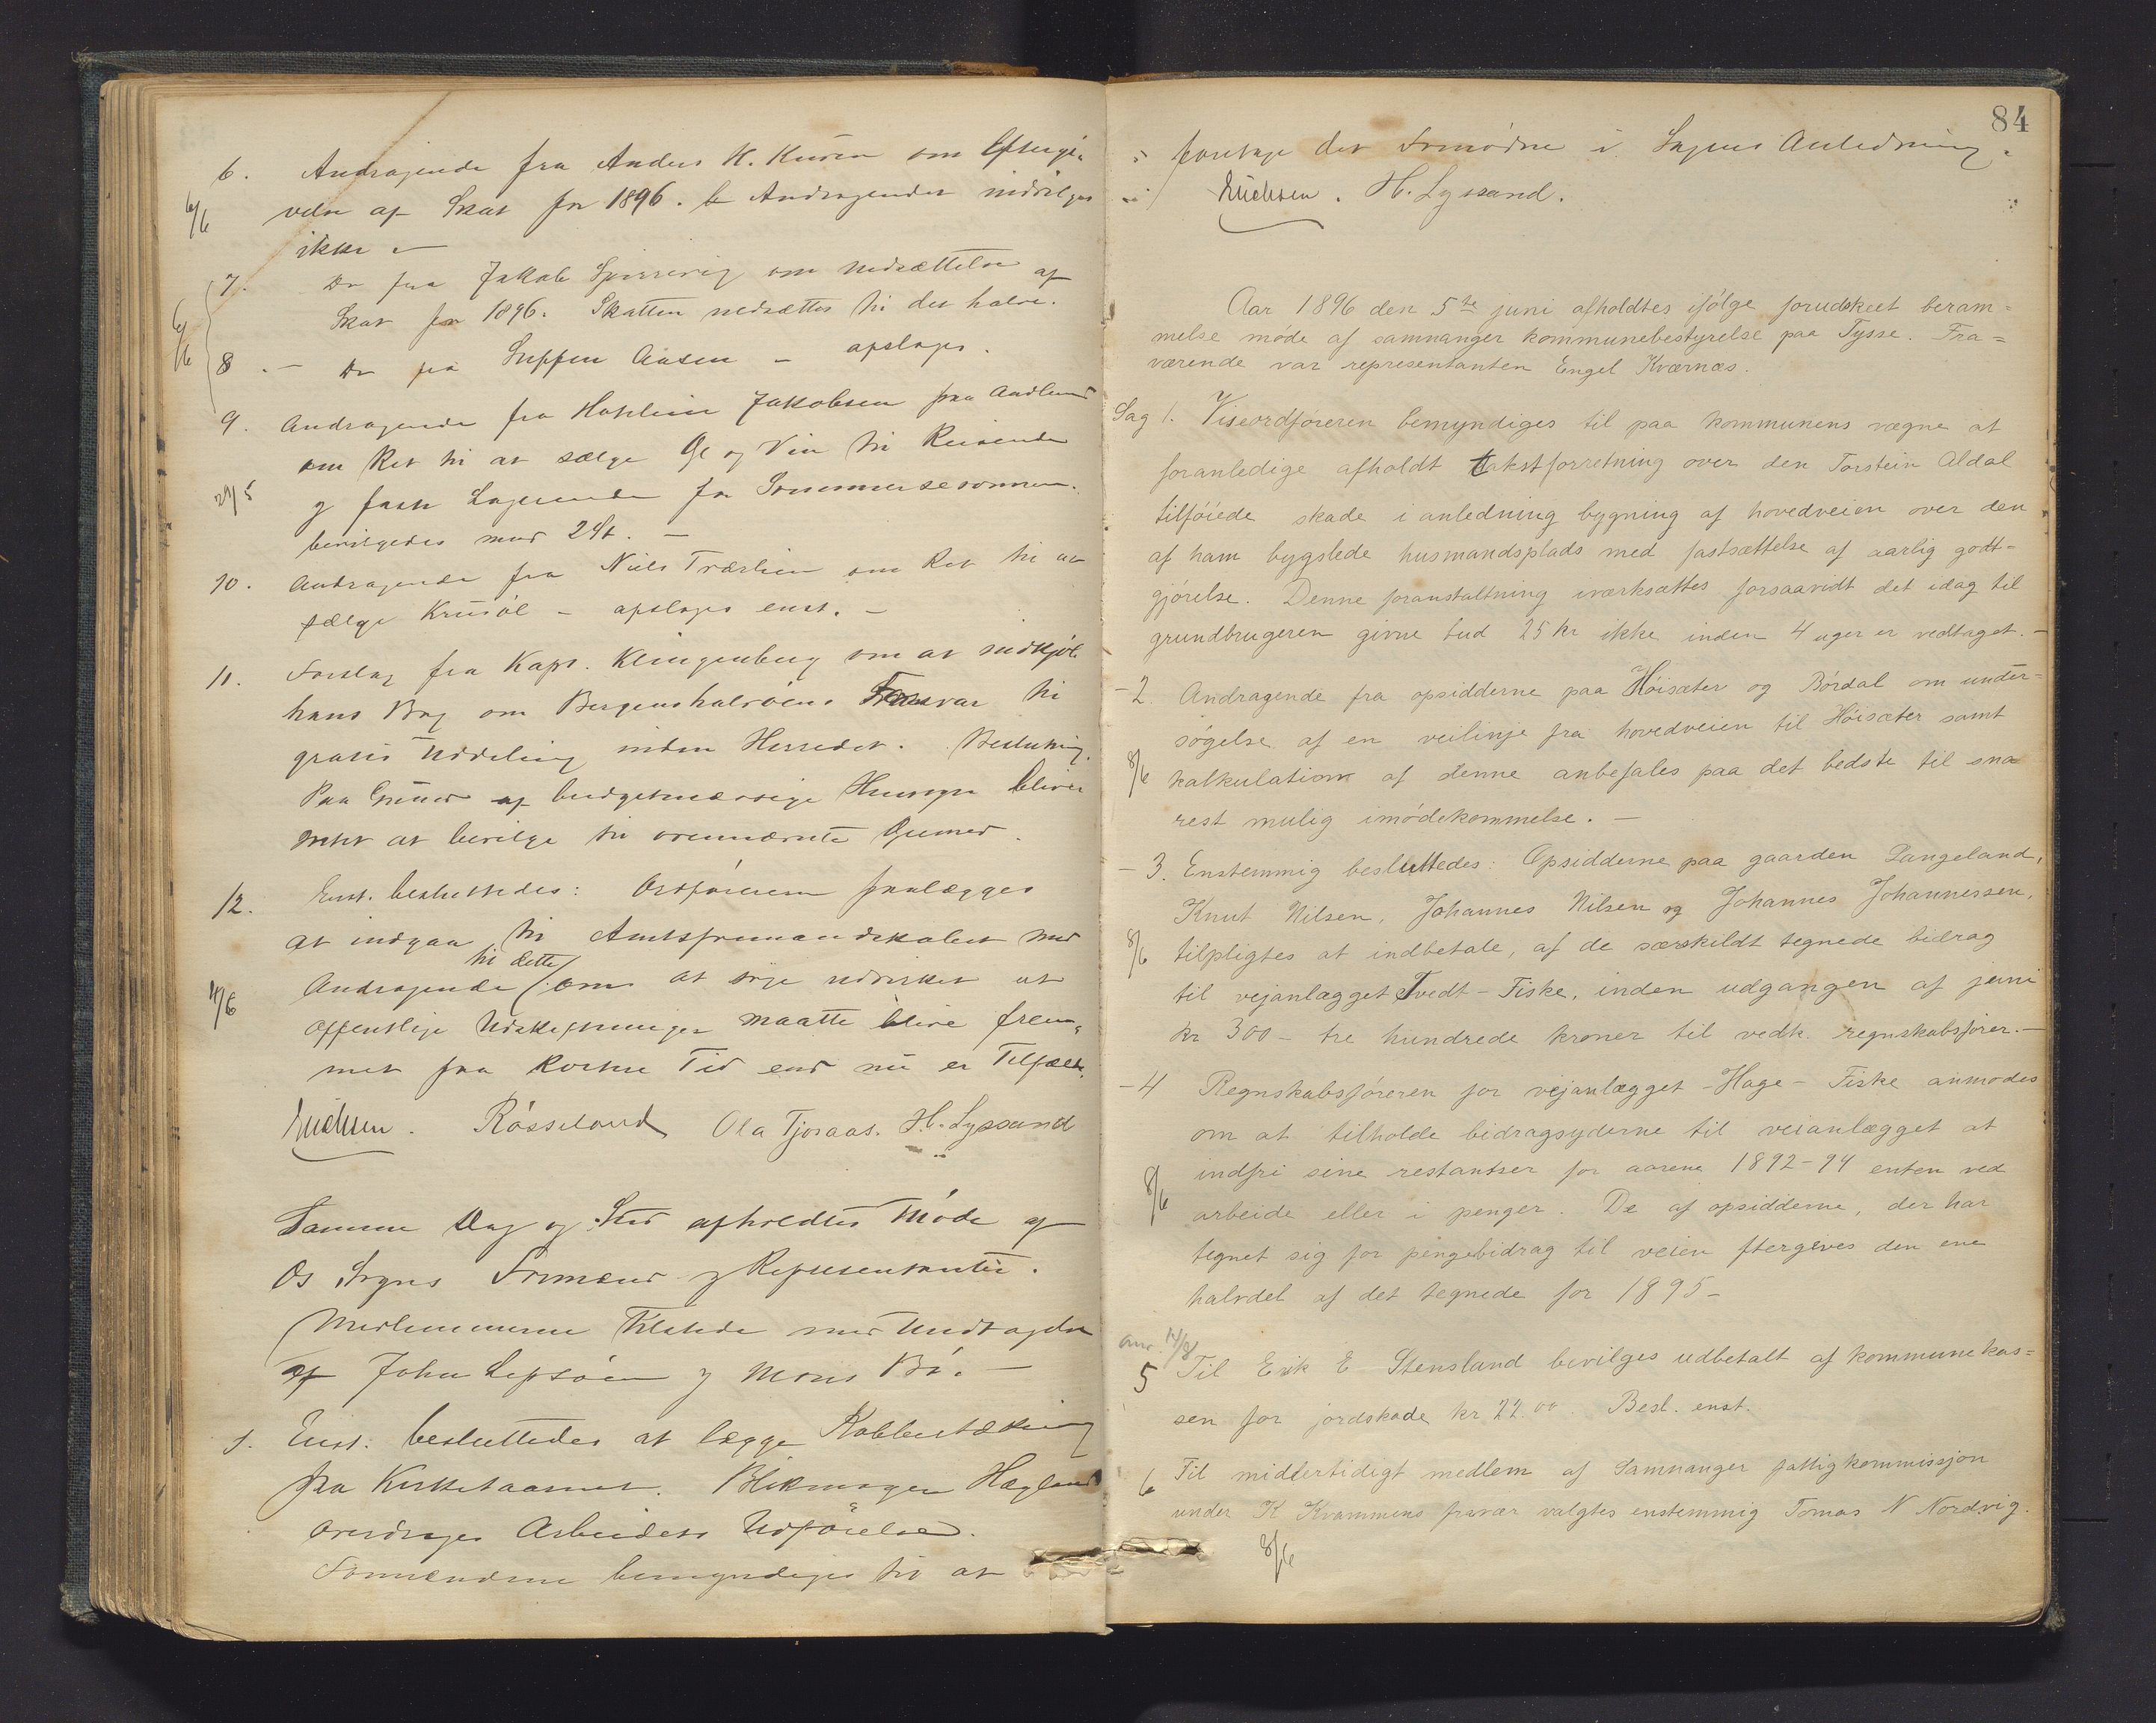 6. Andragende fra Anders K. Kuven om Eftergi-
6/6 velse af Skat for 1896. Andragendet indvilges
ikke.
7. Do fra Jakob om Nedsættelse af
6/6 Skat for 1896. Skatten nedsættes til det halve.
8. – Do fra Aasen – afslages.
9. Andragende fra Jakobsen fra
om Ret til at sælge Øl og Vin til Reisende
29/5 og faste Logerende for Sommersesonnen.
bevilgedes mod 2 St. –
10. Andragende fra Niels Trærlien om Ret til at
sælge Krusøl – afslages enst. –
11. Forslag fra Kapt. Klingenberg om at indkjøbe
hans Bog om Bergenshalvøens Forsvar til
gratis Uddeling inden Herredet. Beslutning.
Paa Grund af budgetmæssige Hensyn bliver
intet at bevilge til ovennævnte Øiemed.
12. Enst. besluttedes: Ordføreren paalægges
at indgaa til Amtsformandskabet med
til dette
11/6 Andragende om at søge udvirket at
offentlige Udskiftninger maatte blive frem-
met paa kortere Tid end nu er Tilfælde.
Røsseland Ola Tjoraas. H. Lyssand
Samme Dag og Sted afholdtes Møde af
Os Sogns Formænd og Repræsentanter.
Medlemmerne tilstede med Undtagelse
af John Lepsøen og Mons Bø. –
1. Enst. besluttedes at lægge Kobbertækning
paa Kirketaarnet. Blikmager Hagland
overdrages Arbeidets Udførelse.
Formændene bemyndiges til at
84
foretage det Fornødne i Sagens Anledning.
H. Lyssand.
Aar 1896 den 5te juni afholdtes ifølge forudskeet beram=
melse møde af samnanger kommunebestyrelse paa Tysse. Fra=
værende var representanten Engel Kværnæs.
Sag 1. Viseordføreren bemyndiges til paa kommunens vægne at
foranledige afholdt takstforretning over den Torstein Aldal
tilføiede skade i anledning bygning af hovedveien over den
af ham bygslede husmandsplads med fastsættelse af aarlig godt-
gjørelse. Denne foranstaltning iværksættes forsaavidt det idag til
grundbrugeren givne bud 25 kr ikke inden 4 uger er vedtaget. –
– 2. Andragende fra opsidderne paa Høisæter og Børdal om under-
søgelse af en veilinje fra hovedveien til Høisæter samt
8/6 kalkulation af denne anbefales paa det bedste til sna
rest mulig imødekommelse. –
– 3. Enstemmig besluttedes: Opsidderne paa gaarden Langeland,
Knut Nilsen, Johannes Nilsen og Johannes Johannessen,
8/6 tilpligtes at indbetale, af de særskildt tegnede bidrag
til vejanlægget Tvedt – Fiske, inden udgangen af juni
kr 300 – tre hundrede kroner til vedk. regnskabsfører. –
– 4 Regnskabsføreren for vejanlægget – Hage – Fiske anmodes
om at tilholde bidragsyderne til veianlægget at
indfri sine restantser for aarene 1892–94 enten ved
8/6 arbeide eller i penger. De af opsidderne, der har
tegnet sig for pengebidrag til veien ftergives den ene
halvdel af det tegnede for 1895 –
anv. 14/8
5 Til Erik E Stensland bevilges udbetalt af kommunekas=
sen for jordskade kr 22.00. Besl. enst.
6 Til midlertidigt medlem af Samnanger fattigkommissjon
under K Kvammens fravær valgtes enstemmig Tomas N Nordvig.
8/6